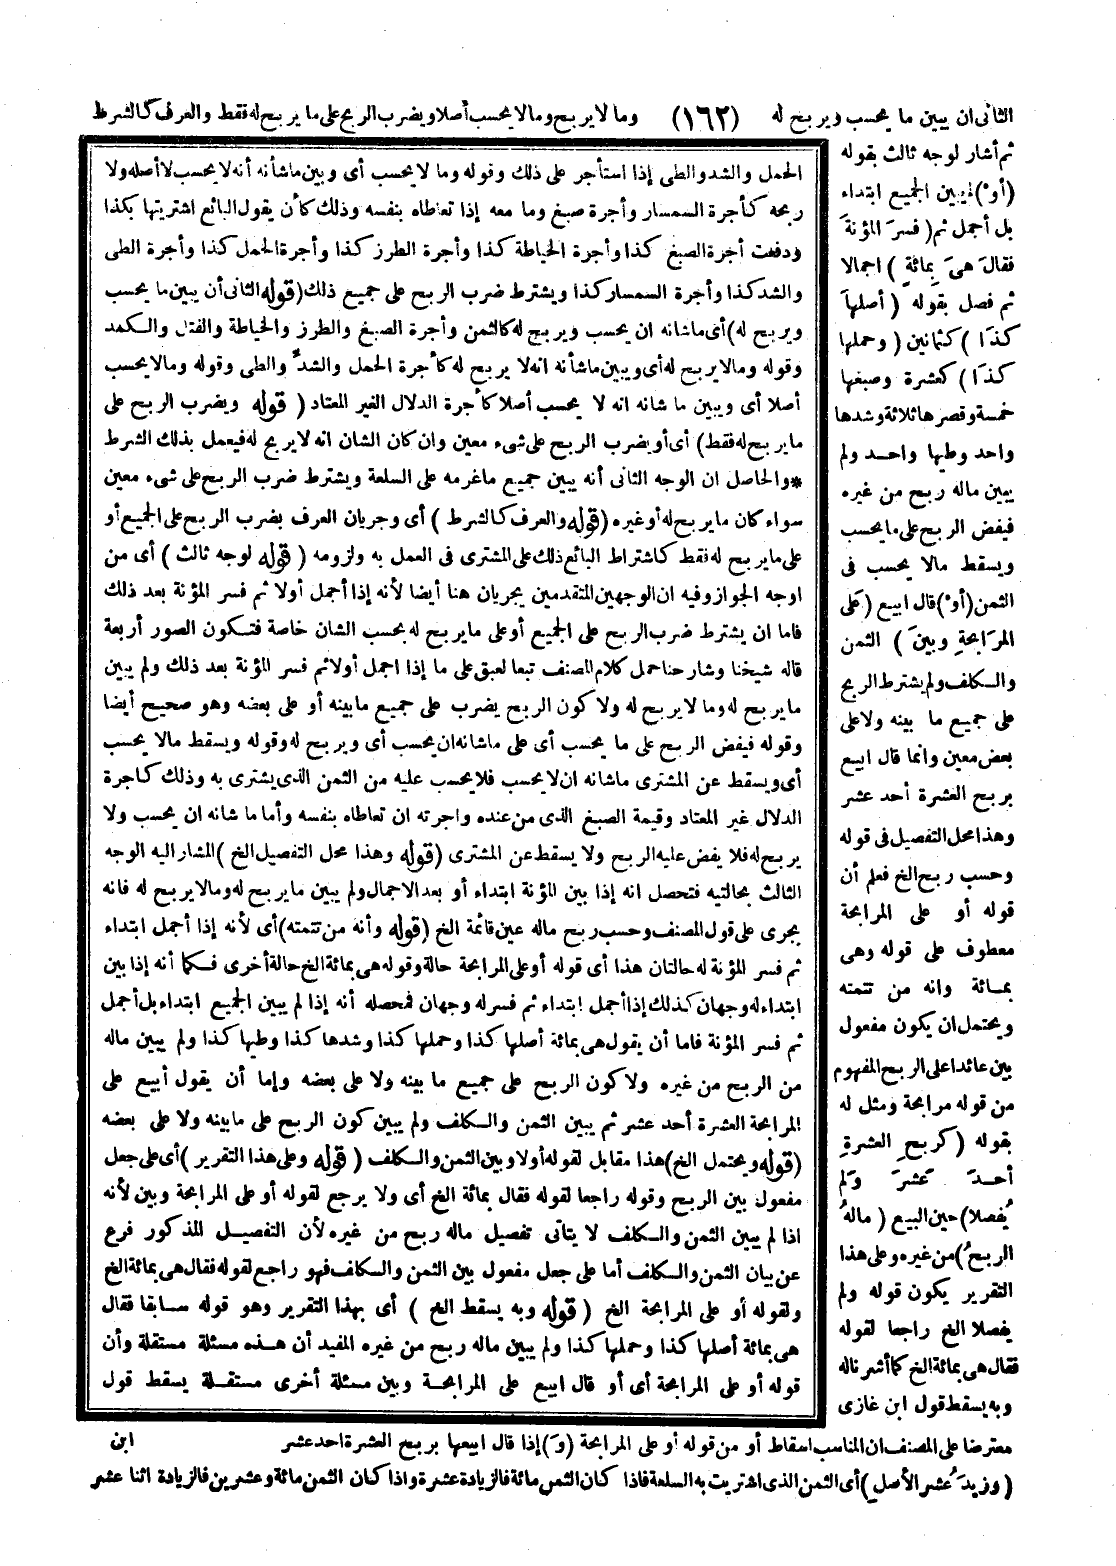 الثاني ان يبين ما يحسب ويربح له (١٦٢) وما لا يربح وما لا يحسب أصلا ويضرب الربح على ما يربح له فقط والعرف كالشرط
ثم أشار لوجه ثالث بقوله
(أو) لم يبين الجميع ابتداء
بل أجمل ثم (فسرَ المؤنةَ
فقالَ هىَ بمائةٍ) اجمالا
ثم فصل بقوله (أصلها
كذا) كثمانين (وحملها
كذا) كعشرة وصبغها
خمسة وقصرها ثلاثة وشدها
واحد وطيها واحد ولم
يبين ماله ربح من غيره
فيفض الربح على ما يحسب
ويسقط مالا يحسب فى
الثمن (أو) قال ابيع (على
المرَابحةِ وبينَ) الثمن
والكلف ولم يشترط الربح
على جميع ما بينه ولا على
بعض معين وانما قال ابيع
بربح العشرة أحد عشر
وهذا محل التفصيل فى قوله
وحسب ربح الخ فعلم أن
قوله أو على المرابحة
معطوف على قوله وهى
بمائة وانه من تتمته
ويحتمل ان يكون مفعول
بين عائدا على الربح المفهوم
من قوله مرابحة ومثل له
بقوله (كربح العشرةِ
أحدَ عشرَ ولم
يُفصلا) حين البيع (مالهُ
الربحُ) من غيره وعلى هذا
التقرير يكون قوله ولم
يفصلا الخ راجعا لقوله
فقال هى بمائة الخ كما أشرناله
وبه يسقط قول ابن غازى
معترضا على المصنف ان المناسب اسقاط أو من قوله أو على المرابحة (وَ) إذا قال ابيعها بربح العشرة احد عشر
(وزيدَ عُشر الأصل) أى الثمن الذى اشتريت به السلعة فاذا كان الثمن مائة فالزيادة عشرة واذا كان الثمن مائة وعشرين فالزيادة اثنا عشر
الحمل والشد والطى إذا استأجر على ذلك وقوله وما لا يحسب أى وبين ماشأنه أنه لا يحسب لا أصله ولا
ربحه كأجرة السمسار وأجرة صبغ وما معه إذا تعاطاه بنفسه وذلك كأن يقول البائع اشتريتها بكذا
ودفعت أجرة الصبغ كذا وأجرة الخياطة كذا وأجرة الطرز كذا وأجرة الحمل كذا وأجرة الطى
والشد كذا وأجرة السمسار كذا ويشترط ضرب الربح على جميع ذلك (قوله الثانى أن يبين ما يحسب
ويربح له) أى ماشانه ان يحسب ويربح له كالثمن وأجرة الصبغ والطرز والخياطة والفتل والكمد
وقوله ومالا يربح له أى ويبين ماشأنه انه لا يربح له كأجرة الحمل والشد والطى وقوله ومالا يحسب
أصلا أى ويبين ما شانه انه لا يحسب أصلا كأجرة الدلال الغير المعتاد (قوله ويضرب الربح على
ما يربح له فقط) أى أو يضرب الربح على شىء معين وان كان الشان انه لا يربح له فيعمل بذلك الشرط
*والحاصل ان الوجه الثانى أنه يبين جميع ماغرمه على السلعة ويشترط ضرب الربح على شىء معين
سواء كان ما يربح له أوغيره (قوله والعرف كالشرط) أى وجريان العرف بضرب الربح على الجميع أو
على ما يربح له فقط كاشتراط البائع ذلك على المشترى فى العمل به ولزومه (قوله لوجه ثالث) أى من
اوجه الجواز وفيه ان الوجهين المتقدمين يجريان هنا أيضا لأنه إذا أجمل أولا ثم فسر المؤنة بعد ذلك
فاما ان يشترط ضرب الربح على الجميع أو على ما يربح له بحسب الشان خاصة فتكون الصور أربعة
قاله شيخنا وشارحنا حمل كلام المصنف تبعا لعبق على ما إذا اجمل أولا ثم فسر المؤنة بعد ذلك ولم يبين
ما يربح له وما لا يربح له ولا كون الربح يضرب على جميع مابينه أو على بعضه وهو صحيح أيضا
وقوله فيفض الربح على ما يحسب أى على ماشانه ان يحسب أى ويربح له وقوله ويسقط مالا يحسب
أى ويسقط عن المشترى ماشانه ان لا يحسب فلا يحسب عليه من الثمن الذى يشترى به وذلك كاجرة
الدلال غير المعتاد وقيمة الصبغ الذى من عنده واجرته ان تعاطاه بنفسه وأما ما شانه ان يحسب ولا
يربح له فلا يفض عليه الربح ولا يسقط عن المشترى (قوله وهذا محل التفصيل الخ) المشار اليه الوجه
الثالث بحالتيه فتحصل انه إذا بين المؤنة ابتداء أو بعد الاجمال ولم يبين ما يربح له ومالا يربح له فانه
يجرى على قول المصنف وحسب ربح ماله عين قائمة الخ (قوله وأنه من تتمته) أى لأنه إذا أجمل ابتداء
ثم فسر المؤنة له حالتان هذا أى قوله أو على المرابحة حالة وقوله هى بمائة الخ حالة أخرى فكما أنه إذا بين
ابتداء له وجهان كذلك إذا أجمل ابتداء ثم فسر له وجهان فمحصله أنه إذا لم يبين الجميع ابتداء بل أجمل
ثم فسر المؤنة فاما أن يقول هى بمائة أصلها كذا وحملها كذا وشدها كذا وطيها كذا ولم يبين ماله
من الربح من غيره ولا كون الربح على جميع ما بينه ولا على بعضه وإما أن يقول أبيع على
المرابحة العشرة أحد عشر ثم يبين الثمن والكلف ولم يبين كون الربح على مابينه ولا على بعضه
(قوله ويحتمل الخ) هذا مقابل لقوله أولا وبين الثمن والكلف (قوله وعلى هذا التقرير) أى على جعل
مفعول بين الربح وقوله راجعا لقوله فقال بمائة الخ أى ولا يرجع لقوله أو على المرابحة وبين لأنه
اذا لم يبين الثمن والكلف لا يتأتى تفصيل ماله ربح من غيره لأن التفصيل المذكور فرع
عن بيان الثمن والكلف أما على جعل مفعول بين الثمن والكلف فهو راجع لقوله فقال هى بمائة الخ
ولقوله أو على المرابحة الخ (قوله وبه يسقط الخ) أى بهذا التقرير وهو قوله سابقا فقال
هى بمائة أصلها كذا وحملها كذا ولم يبين ماله ربح من غيره المفيد أن هذه مسئلة مستقلة وأن
قوله أو على المرابحة أى أو قال ابيع على المرابحة وبين مسئلة أخرى مستقلة يسقط قول
ابن